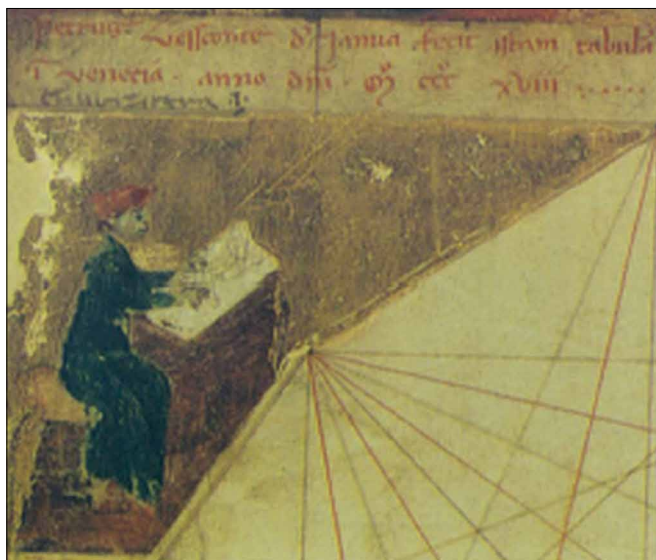 Petrus vessconte d' Janua fecit istam tabulã
ĩ venecia · anno dñi · mº cccº xviii · · · · ·